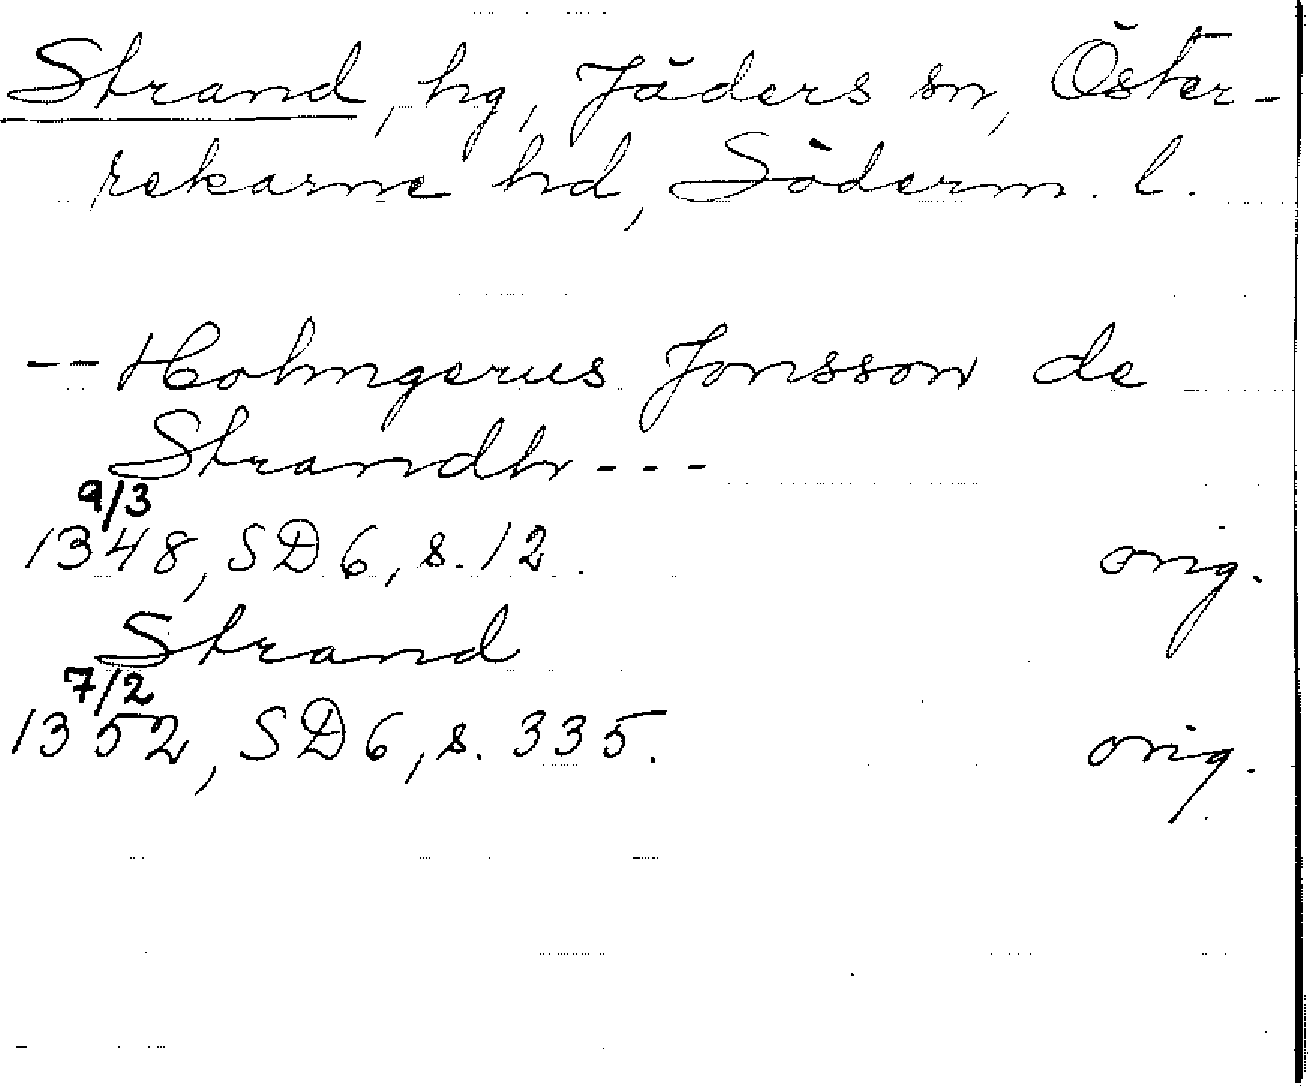 Strand, hg, Jäders sn, Öster-
rekarne hd, Söderm. l.
-- Holmgerus Jonsson de
Strandh ---
9/3
1348, SD 6, s. 12. orig.
Strand
7/2
1352, SD 6, s. 335. orig.